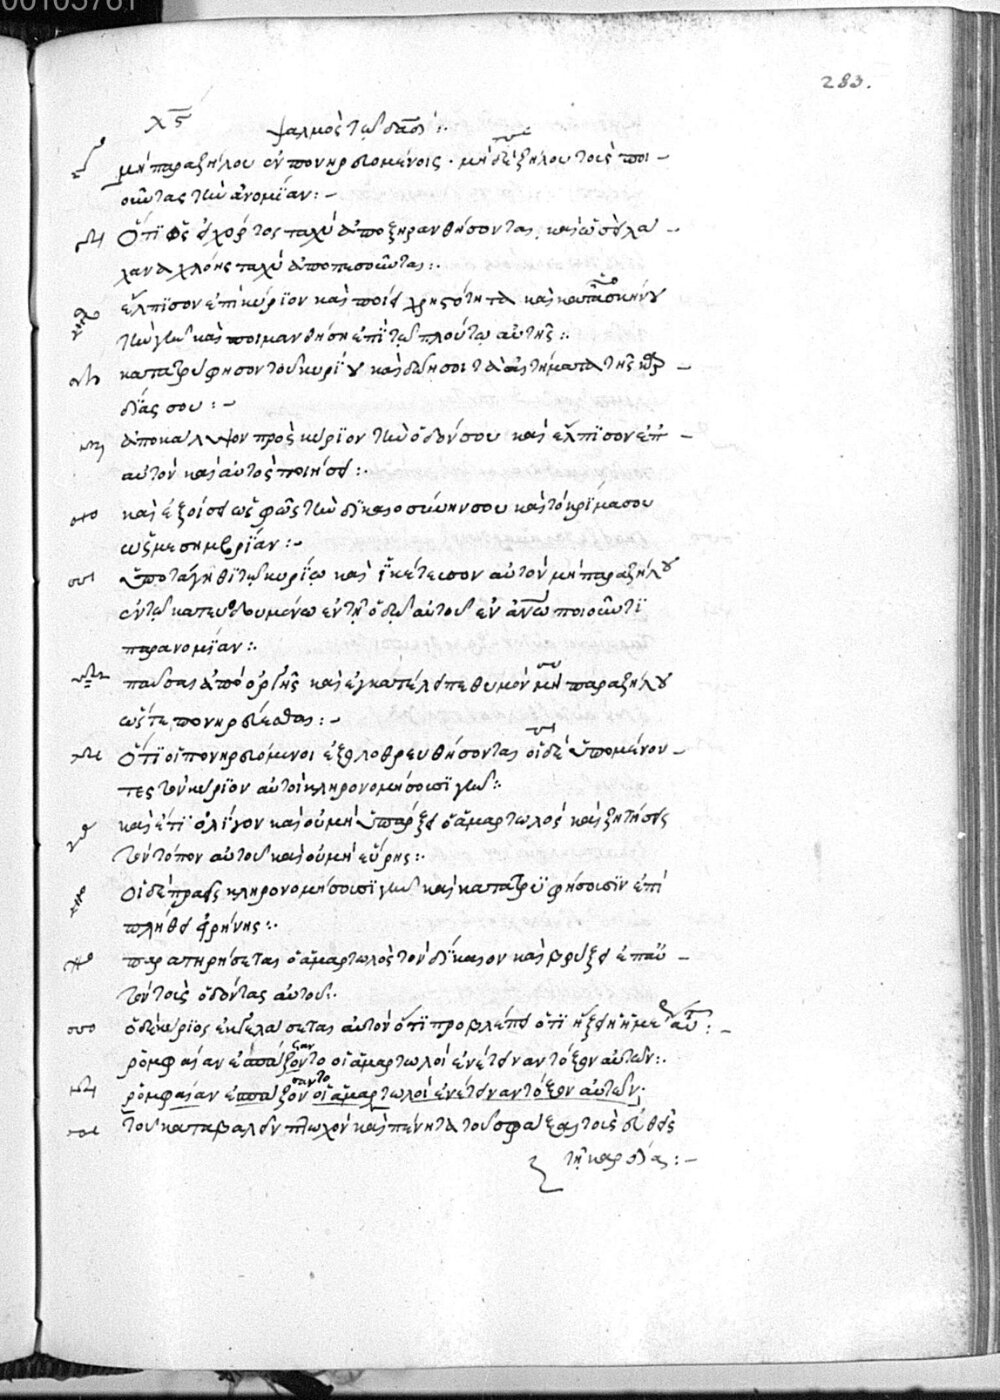 00103761
283.
λς ψαλμὸς τῷ δαδ :.
μὴ παραζήλου ἐν πονηρευομένοις . μὴ δὲ ζήλου τοὺς ποι –
οῦντας τὴν ἀνομίαν : –
Ὅτι ὡς ὁ χόρτος ταχὺ ἀποξηρανθήσονται, καὶ ὡσεὶ λά –
χανα χλόης ταχὺ ἀποπεσοῦνται :.
ἔλπισον ἐπὶ κύριον καὶ ποίει χρηστότητα καὶ κατασκήνου
τὴν γῆν καὶ ποιμανθήσῃ ἐπὶ τῷ πλούτῳ αὐτῆς :.
κατατρύφησον τοῦ κυρίου καὶ δώσῃ σοι τὰ αἰτήματα τῆς καρ –
δίας σου : –
ἀποκάλυψον πρὸς κύριον τὴν ὁδόν σου καὶ ἔλπισον ἐπ –
αὐτὸν καὶ αὐτὸς ποιήσει :.
καὶ ἐξοίσει ὡς φῶς τὴν δικαιοσύνην σου καὶ τὸ κρίμα σου
ὡς μεσημβρίαν : –
Ὑποτάγηθι τῷ κυρίῳ καὶ ἱκέτευσον αὐτόν μὴ παραζήλου
ἐν τῷ κατευοδουμένῳ ἐν τῇ ὁδῷ αὐτοῦ ἐν ἀνω ποιοῦντι
παρανομίαν :.
παῦσαι ἀπὸ ὀργῆς καὶ ἐγκατέλειπε θυμόν μὴ παραζήλου
ὥστε πονηρεύεσθαι : –
Ὅτι οἱ πονηρευόμενοι ἐξολοθρευθήσονται οἱ δὲ ὑπομένον –
τες τὸν κύριον αὐτοὶ κληρονομήσουσι γῆν :.
καὶ ἔτι ὀλίγον καὶ οὐ μὴ ὑπάρξει ὁ ἁμαρτωλός καὶ ζητήσεις
τὸν τόπον αὐτοῦ καὶ οὐ μὴ εὕρῃς :.
Οἱ δὲ πραεῖς κληρονομήσουσι γῆν καὶ κατατρυφήσουσιν ἐπὶ
πλήθει εἰρήνης :.
παρατηρήσεται ὁ ἁμαρτωλὸς τὸν δίκαιον καὶ βρύξει ἐπ αὐ –
τὸν τοὺς ὀδόντας αὐτοῦ :.
ὁ δὲ κύριος ἐκγελάσεται αὐτὸν ὅτι προβλέπει ὅτι ἥξει ἡ ἡμέρα αὐτοῦ : –
ῥομφαίαν ἐσπάσαντο οἱ ἁμαρτωλοὶ ἐνέτειναν τόξον αὐτῶν :.
ῥομφαίαν ἐσπάσαντο οἱ ἁμαρτωλοὶ ἐνέτειναν τόξον αὐτῶν :
Τοῦ καταβαλεῖν πτωχὸν καὶ πένητα τοῦ σφάξαι τοὺς εὐθεῖς
τῇ καρδίᾳ : –